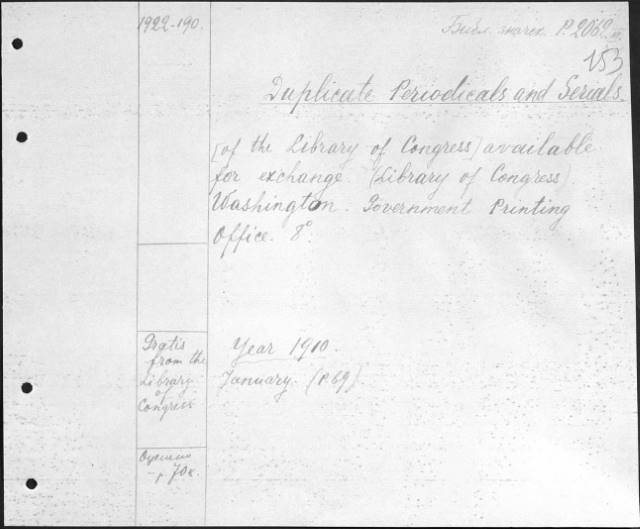 1922-190.
Библ. значек P. 2062
153
Duplicate Periodicals and Serials.
[of the Library of Congress] available
for exchange. (Library of Congress)
Washington. Government Printing
Office. 8°.
Gratis
from the
Library
of
Congress
Year 1910.
January. (P. 69)
Оценено
70к.